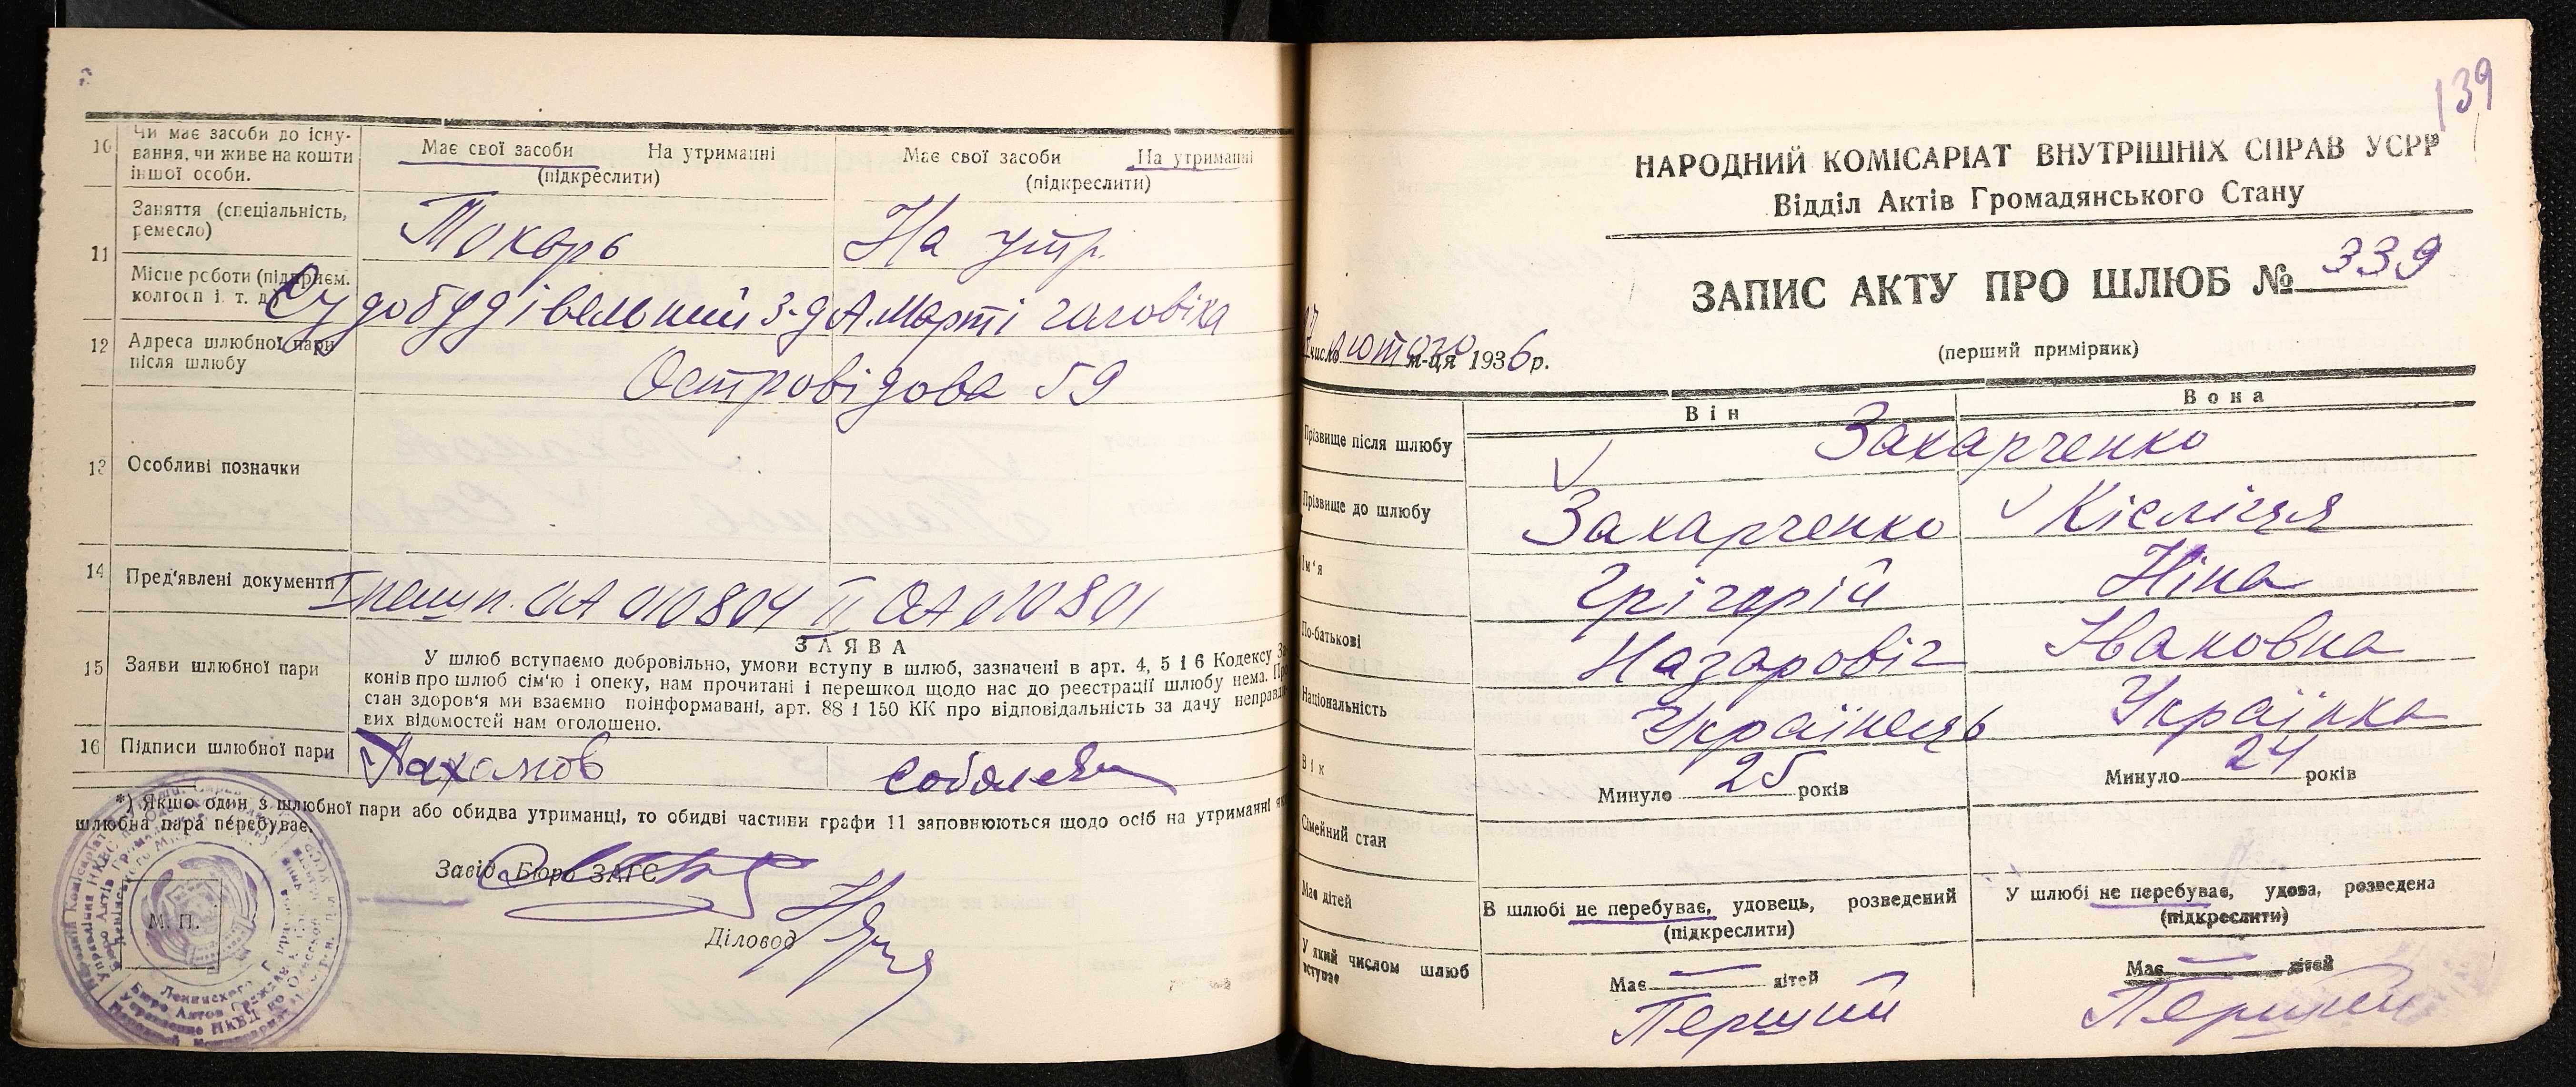 10 Чи має засоби до існу-
вання, чи живе на кошти
іншої особи.
Має свої засоби На утриманні
(підкреслити)
Має свої засоби На утриманні
(підкреслити)
11 Заняття (спеціальність,
ремесло)
Токарь
На утр.
Місце роботи (підприєм.
колгосп і. т. д.)
Судобудівельний з-д А. Марті чоловіка
12 Адреса шлюбної пари
після шлюбу
Островідова 59
13 Особливі позначки
14 Пред'явлені документи
I пасп. ОА 010804 II ОА 010801
15 Заяви шлюбної пари
ЗАЯВА
У шлюб вступаємо добровільно, умови вступу в шлюб, зазначені в арт. 4, 5 і 6 Кодексу За-
конів про шлюб сім'ю і опеку, нам прочитані і перешкод щодо нас до реєстрації шлюбу нема. Про
стан здоров'я ми взаємно поінформавані, арт. 88 і 150 КК про відповідальність за дачу неправди-
вих відомостей нам оголошено.
16 Підписи шлюбної пари
Пахомов
Соболева
*) Якщо один з шлюбної пари або обидва утриманці, то обидві частини графи 11 заповнюються щодо осіб на утриманні як
шлюбна пара перебуває.
Завід. Бюро ЗАГС
Діловод
М. П.
139
НАРОДНИЙ КОМІСАРІАТ ВНУТРІШНІХ СПРАВ УСРР
Відділ Актів Громадянського Стану
ЗАПИС АКТУ ПРО ШЛЮБ № 339
числа лютого м-ця 1936 р.
(перший примірник)
Він
Вона
Прізвище після шлюбу
Захарченко
Прізвище до шлюбу
Захарченко
Кісліця
Ім'я
Грігорій
Ніна
По-батькові
Назаровіч
Івановна
Національність
Українець
Українка
Вік
Минуло 25 років
Минуло 24 років
Сімейний стан
В шлюбі не перебуває, удовець, розведений
(підкреслити)
У шлюбі не перебуває, удова, розведена
(підкреслити)
Має дітей
Має — дітей
Має — дітей
У який числом шлюб
вступає
Перший
Перший